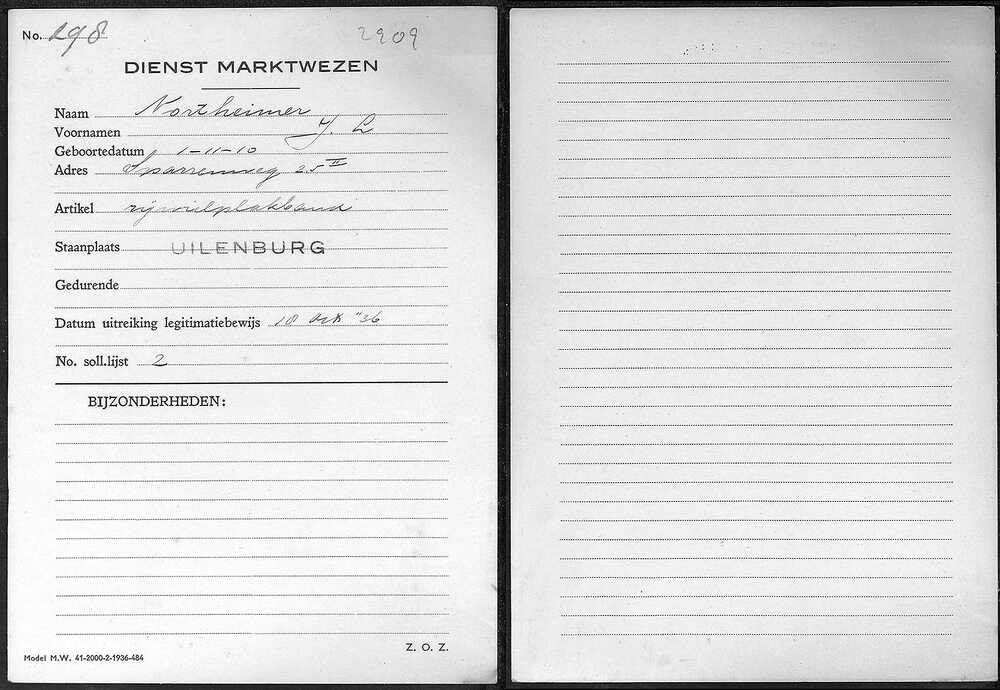 No. 298 2909
DIENST MARKTWEZEN
Naam Northeimer
Voornamen J. L
Geboortedatum 1-11-10
Adres Sparrenweg 25 II
Artikel rijwielplakband
Staanplaats UILENBURG
Gedurende
Datum uitreiking legitimatiebewijs 18 "36
No. soll.lijst 2
BIJZONDERHEDEN:
Z. O. Z.
Model M.W. 41-2000-2-1936-484